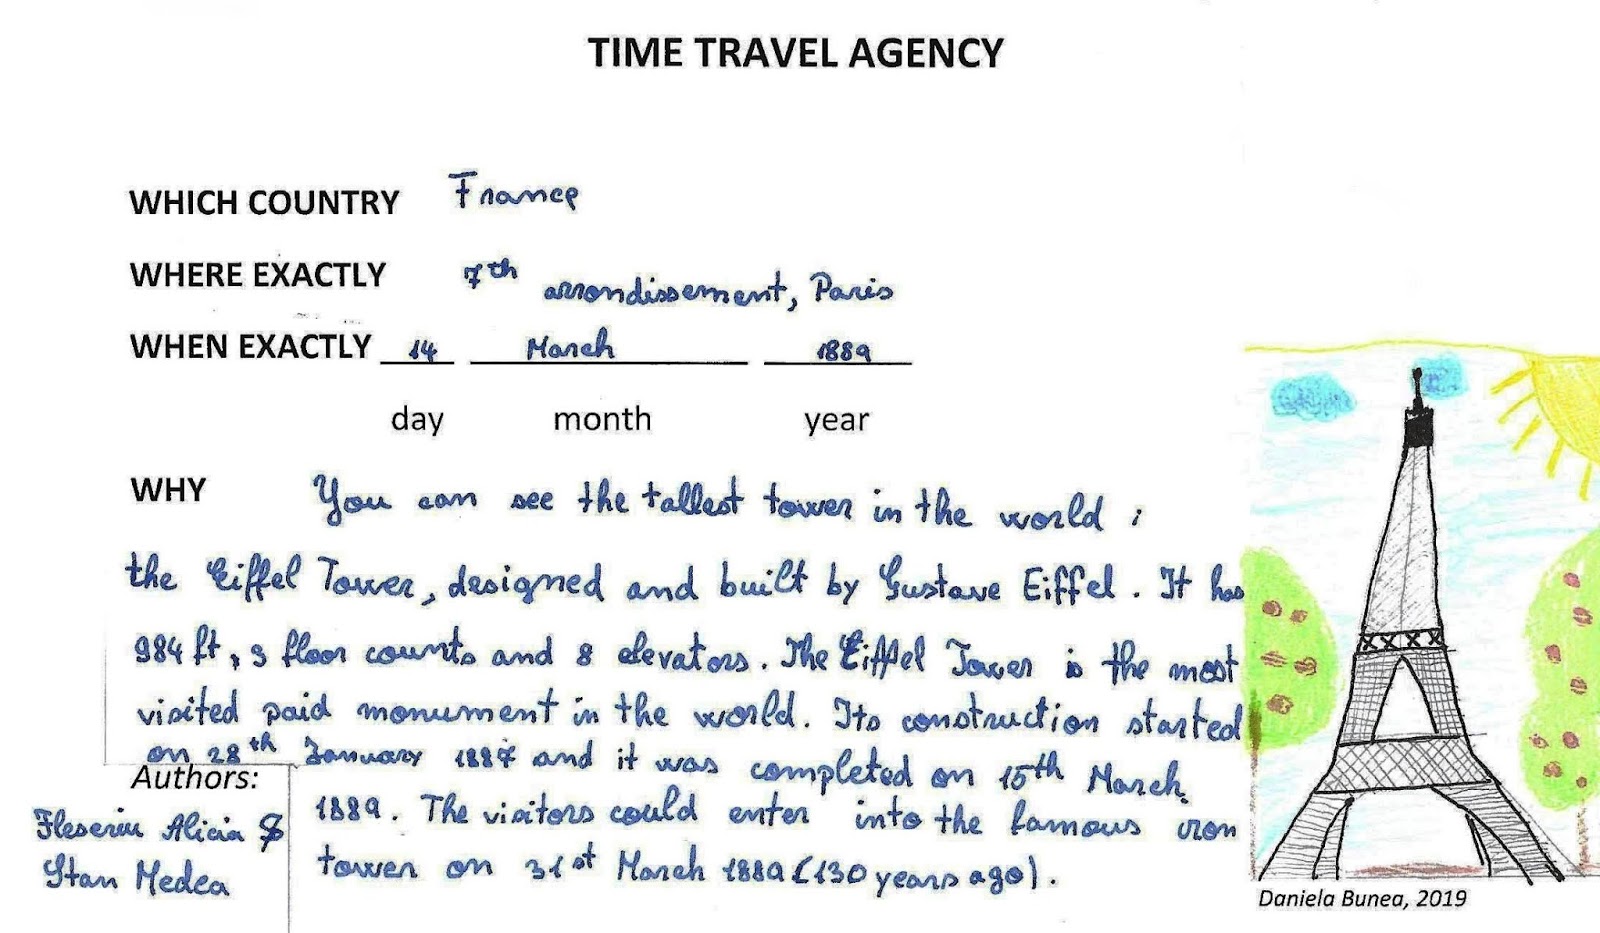 TIME TRAVEL AGENCY
WHICH COUNTRY France
WHERE EXACTLY 7th arrondissement, Paris
WHEN EXACTLY 14 March 1889
day month year
WHY You can see the tallest tower in the world :
the Eiffel Tower, designed and built by Gustave Eiffel. It has
984 ft, 3 floor counts and 8 elevators. The Eiffel Tower is the most
visited paid monument in the world. Its construction started
on 28th January 1887 and it was completed on 15th March
1889. The visitors could enter into the famous iron
tower on 31st March 1889 (130 years ago).
Authors:
Fleseriu Alicia &
Stan Medea
Daniela Bunea, 2019